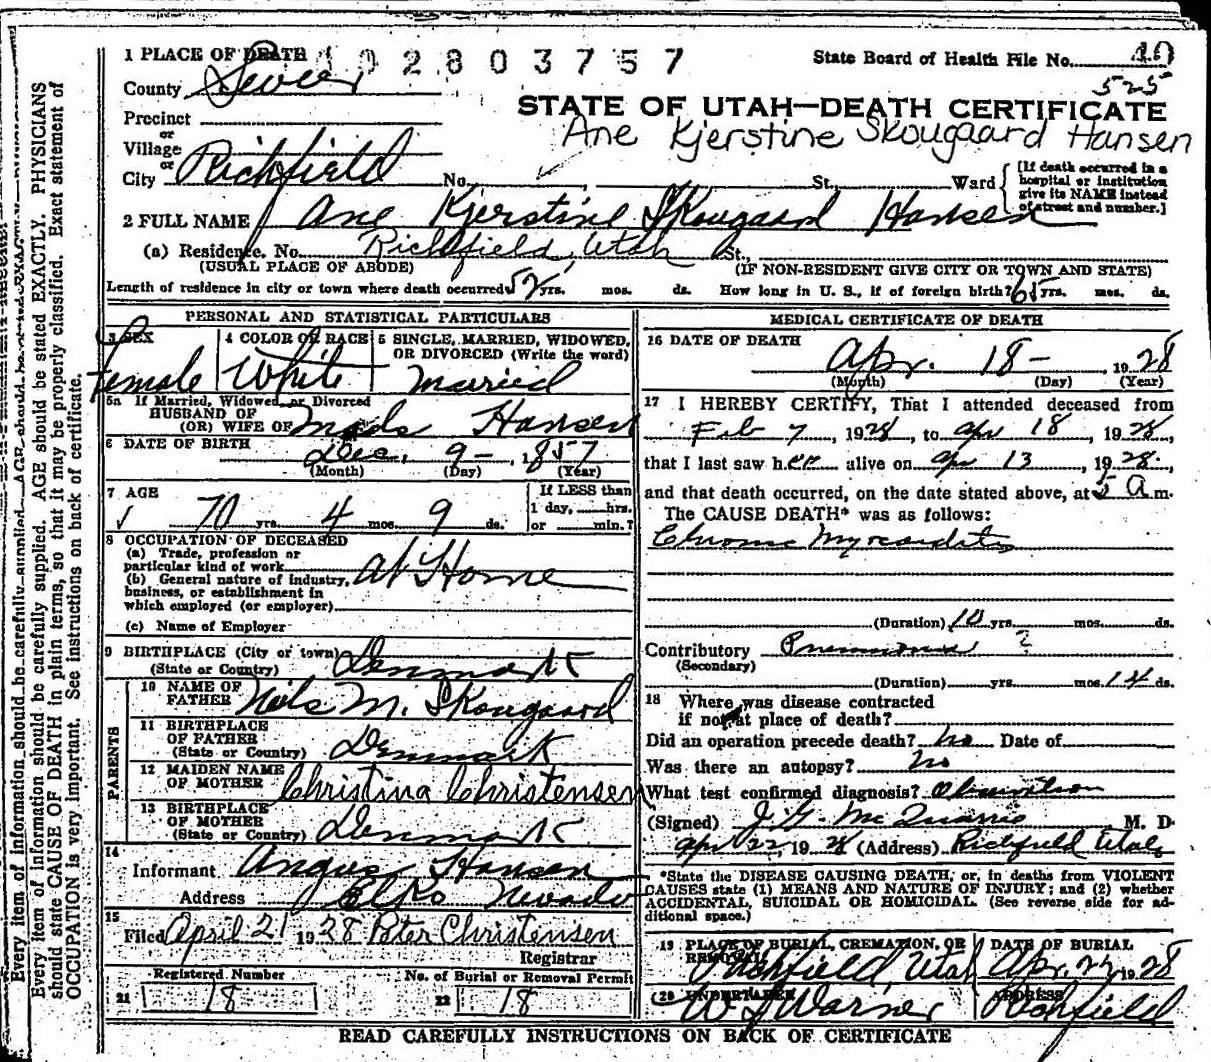 1 PLACE OF DEATH
102803757
State Board of Health File No. 40
525
County Sevier
STATE OF UTAH—DEATH CERTIFICATE
Precinct
or
Village
or
City Richfield
Ane Kjerstine Skougaard Hansen
No. St., Ward
[If death occurred in a hospital or institution give its NAME instead of street and number.]
2 FULL NAME Ane Kjerstine Skougaard Hansen
(a) Residence. No. Richfield, Utah St.,
(USUAL PLACE OF ABODE) (IF NON-RESIDENT GIVE CITY OR TOWN AND STATE)
Length of residence in city or town where death occurred 52 yrs. mos. ds. How long in U. S., if of foreign birth? 65 yrs. mos. ds.
PERSONAL AND STATISTICAL PARTICULARS
3 SEX
female
4 COLOR OR RACE
White
5 SINGLE, MARRIED, WIDOWED, OR DIVORCED (Write the word)
Married
5a If Married, Widowed, or Divorced
HUSBAND OF
(OR) WIFE OF Mads Hansen
6 DATE OF BIRTH Dec. 9 - 1857
(Month) (Day) (Year)
7 AGE
70 yrs. 4 mos. 9 ds.
If LESS than
1 day, hrs.
or min.?
8 OCCUPATION OF DECEASED
(a) Trade, profession or
particular kind of work At Home
(b) General nature of industry,
business, or establishment in
which employed (or employer)
(c) Name of Employer
9 BIRTHPLACE (City or town)
(State or Country) Denmark
PARENTS
10 NAME OF
FATHER Niels M. Skougaard
11 BIRTHPLACE
OF FATHER
(State or Country) Denmark
12 MAIDEN NAME
OF MOTHER Christina Christensen
13 BIRTHPLACE
OF MOTHER
(State or Country) Denmark
14
Informant Angus Hansen
Address Elko Nevada
15
Filed April 21 1928 Peter Christensen
Registrar
Registered Number
21 18
No. of Burial or Removal Permit
22 18
MEDICAL CERTIFICATE OF DEATH
16 DATE OF DEATH
Apr. 18 - 1928
(Month) (Day) (Year)
17 I HEREBY CERTIFY, That I attended deceased from
Feb 7, 1928, to Apr 18, 1928,
that I last saw her alive on Apr 13, 1928.
and that death occurred, on the date stated above, at 5 a m.
The CAUSE DEATH* was as follows:
Chronic Myocarditis
(Duration) 10 yrs. mos. ds.
Contributory Pneumonia ?
(Secondary)
(Duration) yrs. mos. 14 ds.
18 Where was disease contracted
if not at place of death?
Did an operation precede death? no Date of
Was there an autopsy? no
What test confirmed diagnosis? Observation
(Signed) J. G. McQuarrie M. D.
Apr 22, 1928 (Address) Richfield Utah
*State the DISEASE CAUSING DEATH, or, in deaths from VIOLENT
CAUSES state (1) MEANS AND NATURE OF INJURY; and (2) whether
ACCIDENTAL, SUICIDAL OR HOMICIDAL. (See reverse side for ad-
ditional space.)
19 PLACE OF BURIAL, CREMATION, OR
REMOVAL
Richfield Utah
DATE OF BURIAL
Apr. 22, 1928
20 UNDERTAKER
W J Warner
ADDRESS
Richfield
READ CAREFULLY INSTRUCTIONS ON BACK OF CERTIFICATE
Every item of information should be carefully supplied. AGE should be stated EXACTLY. PHYSICIANS
should state CAUSE OF DEATH in plain terms, so that it may be properly classified. Exact statement of
OCCUPATION is very important. See instructions on back of certificate.